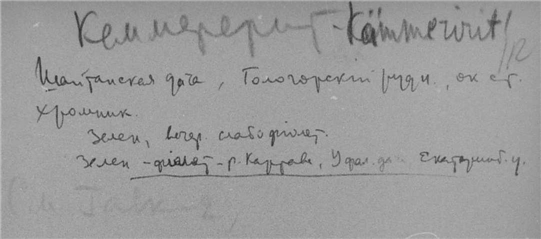 Кеммерерит - Kämmererit
Шайтанская дача, Гологорский рудн., ок. ст.
хромник.
Зелен, вечер. слабо фіолет.
Зелен - фіолет - р. Каркади, Уфал. да Екатеринб. у.
См.